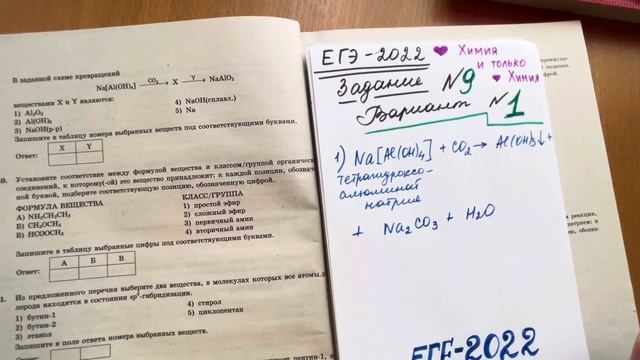 В заданной схеме превращений
Na[Al(OH)₄] —CO₂→ X —Y→ NaAlO₂
веществами X и Y являются:
1) Al₂O₃
2) Al(OH)₃
3) NaOH(р-р)
4) NaOH(сплавл.)
5) Na
Запишите в таблицу номера выбранных веществ под соответствующими буквами.
Ответ:
X Y
0. Установите соответствие между формулой вещества и классом/группой органичес
соединений, к которому(-ой) это вещество принадлежит: к каждой позиции, обознач
ной буквой, подберите соответствующую позицию, обозначенную цифрой.
ФОРМУЛА ВЕЩЕСТВА
А) NH₂CH₂CH₃
Б) CH₃OCH₃
В) HCOOCH₃
КЛАСС/ГРУППА
1) простой эфир
2) сложный эфир
3) первичный амин
4) вторичный амин
Запишите в таблицу выбранные цифры под соответствующими буквами.
Ответ:
А Б В
1. Из предложенного перечня выберите два вещества, в молекулах которых все атомы
лерода находятся в состоянии sp³-гибридизации.
1) бутин-1
2) бутин-2
3) этанол
4) стирол
5) циклопентан
Запишите в поле ответа номера выбранных веществ.
Ответ:
ЕГЭ-2022
Химия
и только
Химия
Задание №9
Вариант №1
1) Na[Al(OH)₄] + CO₂ → Al(OH)₃↓ +
тетрагидроксо-
алюминат
натрия
+ Na₂CO₃ + H₂O
ЕГЕ-2022
преимуще
цифрой.
реакции,
пентин-1, в